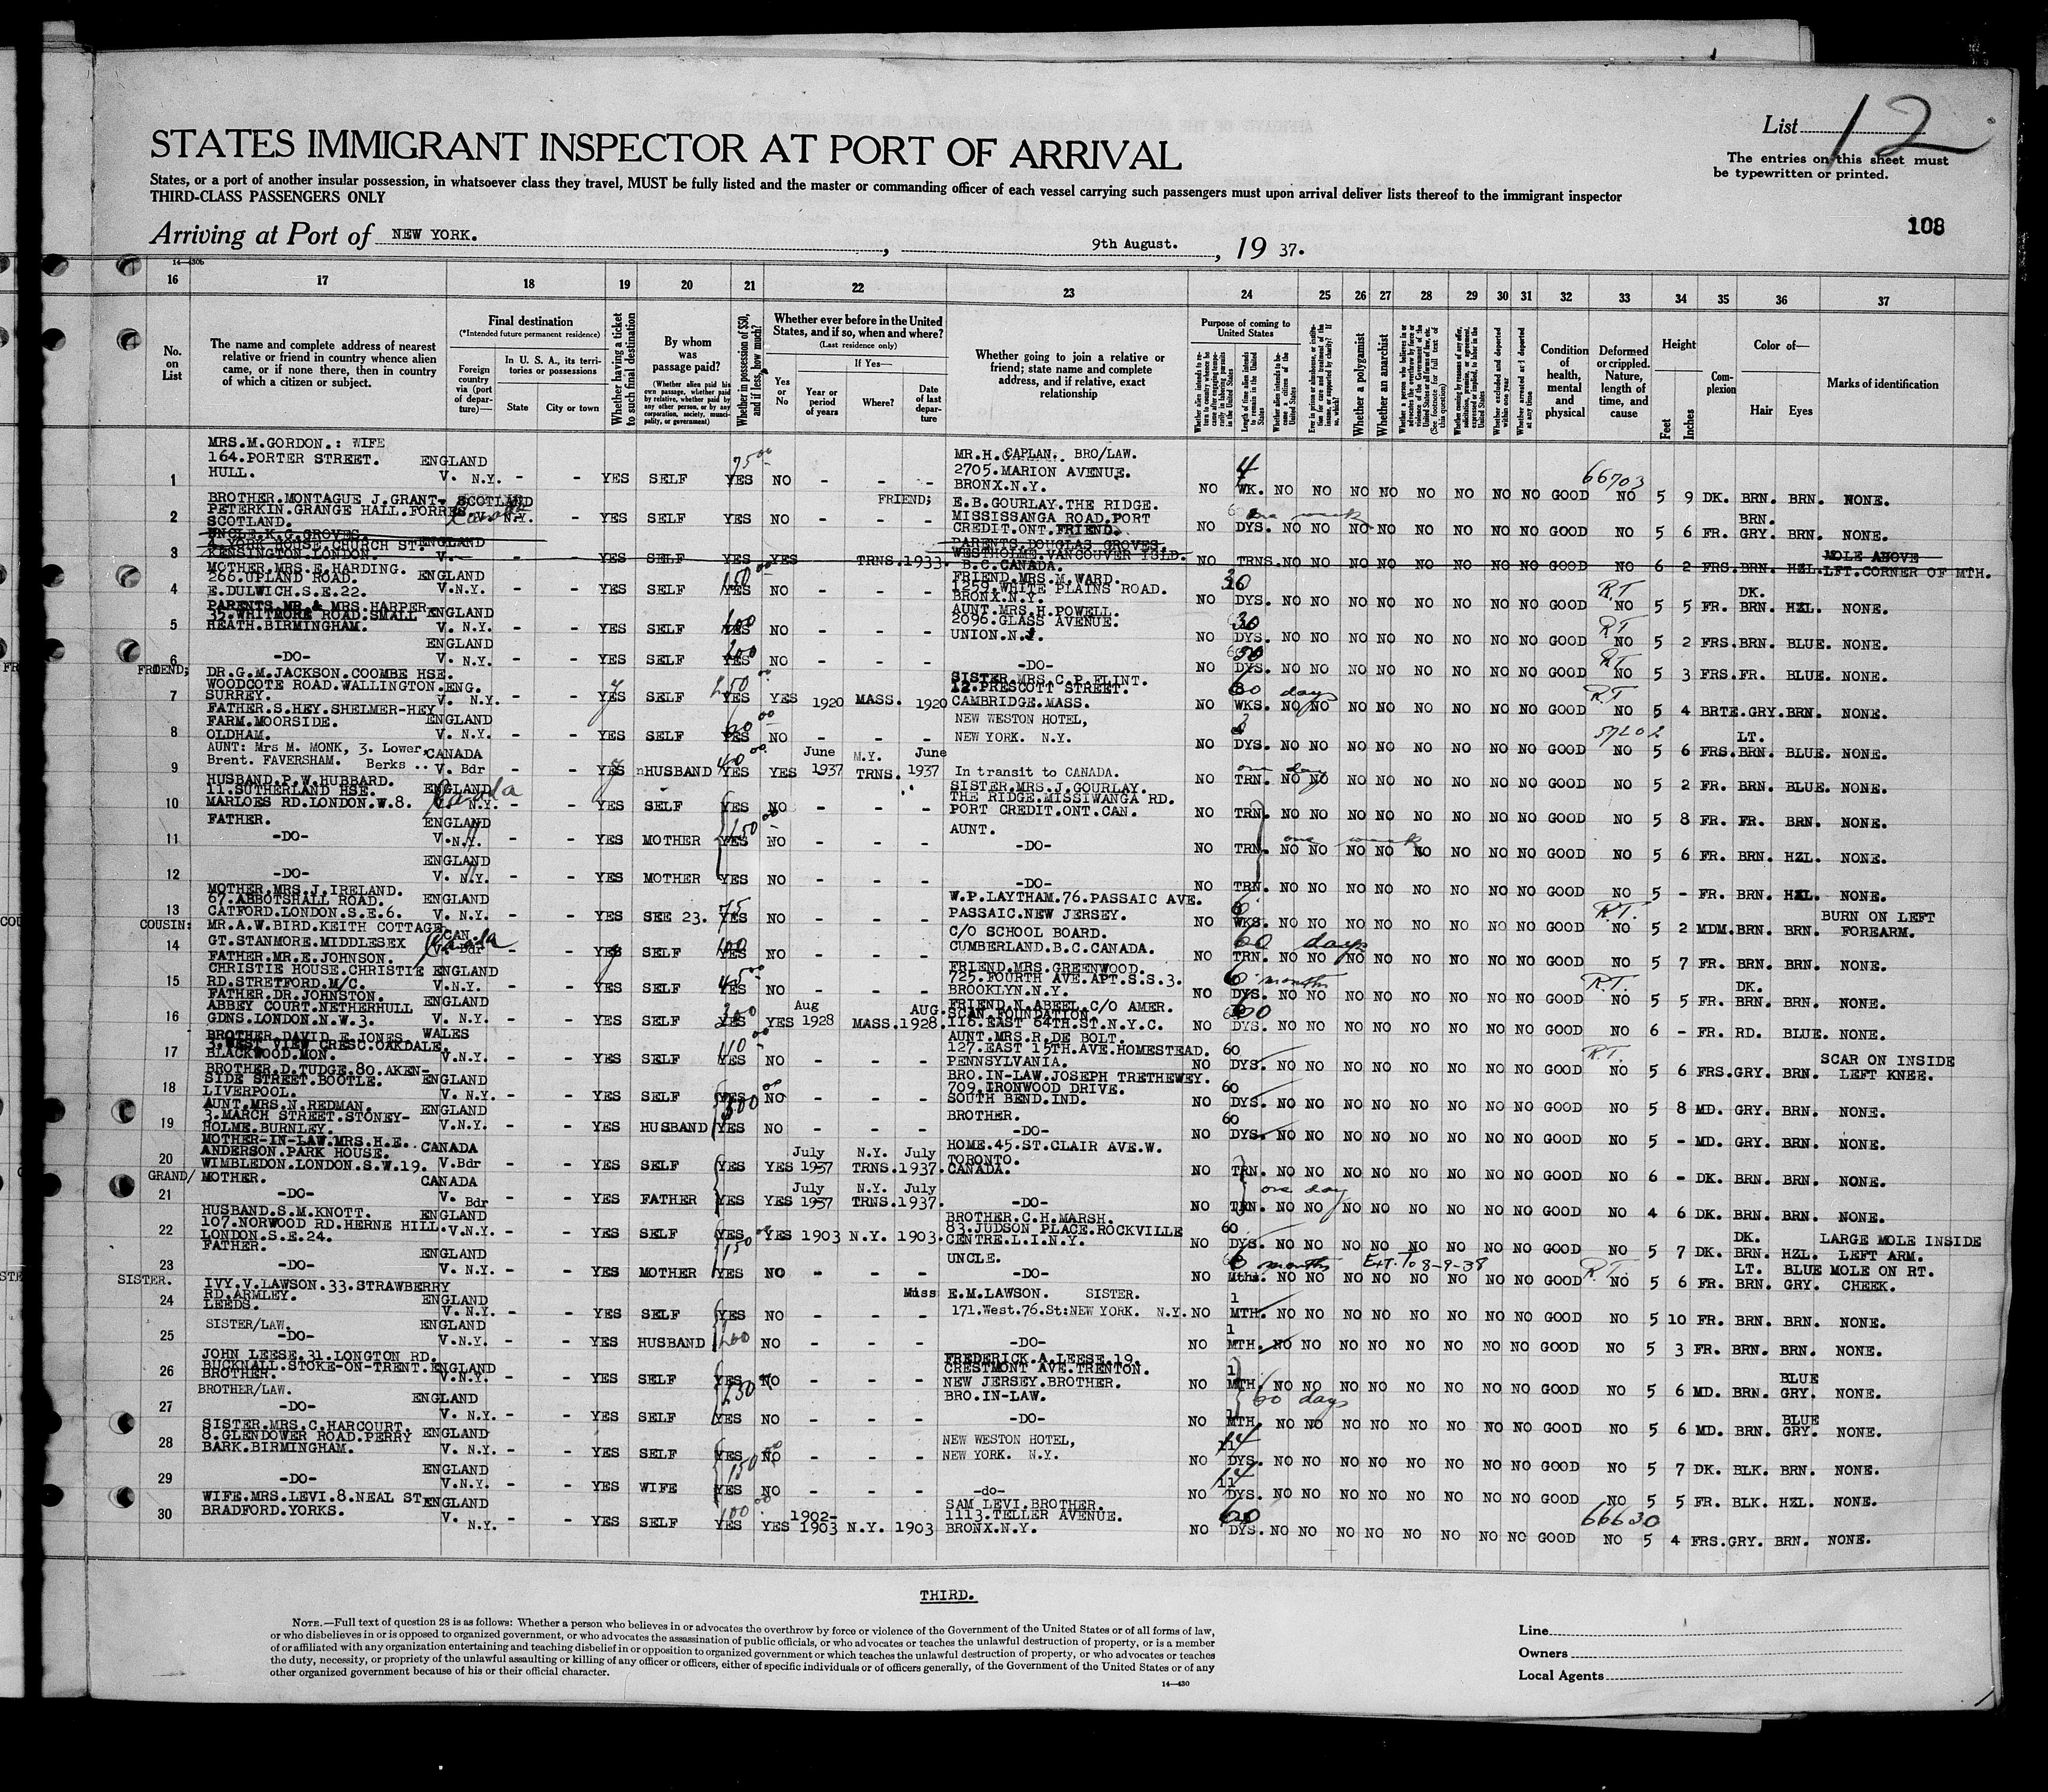 List 12
STATES IMMIGRANT INSPECTOR AT PORT OF ARRIVAL
The entries on this sheet must
be typewritten or printed.
States, or a port of another insular possession, in whatsoever class they travel, MUST be fully listed and the master or commanding officer of each vessel carrying such passengers must upon arrival deliver lists thereof to the immigrant inspector
THIRD-CLASS PASSENGERS ONLY
108
Arriving at Port of NEW YORK. , 9th August. , 19 37.
14—430b
16 17 18 19 20 21 22 23 24 25 26 27 28 29 30 31 32 33 34 35 36 37
No. on List
The name and complete address of nearest relative or friend in country whence alien came, or if none there, then in country of which a citizen or subject.
Final destination
(*Intended future permanent residence)
Foreign country via (port of departure)—
In U. S. A., its territories or possessions
State City or town
Whether having a ticket to such final destination
By whom was passage paid?
(Whether alien paid his own passage, whether paid by relative, whether paid by any other person, or by any corporation, society, municipality, or government)
Whether in possession of $50, and if less, how much?
Whether ever before in the United States, and if so, when and where?
(Last residence only)
If Yes—
Yes or No
Year or period of years
Where?
Date of last departure
Whether going to join a relative or friend; state name and complete address, and if relative, exact relationship
Purpose of coming to United States
Whether a polygamist
Whether an anarchist
Condition of health, mental and physical
Deformed or crippled. Nature, length of time, and cause
Height
Feet Inches
Complexion
Color of—
Hair Eyes
Marks of identification
MRS.M.GORDON.: WIFE
164.PORTER STREET. ENGLAND MR.H.CAPLAN. BRO/LAW.
HULL. V. N.Y. 2705.MARION AVENUE.
BRONX.N.Y.
1 - - YES SELF 75 00 YES NO - - - NO 4 WK. NO NO NO NO NO NO NO NO GOOD 66703 NO 5 9 DK. BRN. BRN. NONE.
BROTHER.MONTAGUE J.GRANT- SCOTLAND FRIEND; E.B.GOURLAY.THE RIDGE.
PETERKIN.GRANGE HALL.FORRES Canada V. N.Y. MISSISSANGA ROAD.PORT
SCOTLAND. CREDIT.ONT.FRIEND.
2 - - YES SELF YES NO - - - NO DYS. one week NO NO NO NO NO NO NO NO GOOD NO 5 6 FR. BRN. GRY. BRN. NONE.
UNCLE.K.G.GROVES. PARENTS.DOUGLAS GROVES.
4 YORK HOUSE.CHURCH ST. ENGLAND WESTHOLME.VANCOUVER ISLD.
KENSINGTON.LONDON. V.- B.C.CANADA.
3 - - YES SELF YES YES TRNS. 1933. NO TRNS. NO NO NO NO NO NO NO NO GOOD NO 6 2 FRS. BRN. HZL. MOLE ABOVE LFT.CORNER OF MTH.
MOTHER.MRS.E.HARDING. FRIEND.MRS.M.WARD.
266.UPLAND ROAD. ENGLAND 1259.WHITE PLAINS ROAD.
E.DULWICH.S.E.22. V.N.Y. BRONX.N.Y.
4 - - YES SELF 150 00 YES NO - - - NO 30 DYS. NO NO NO NO NO NO NO NO GOOD R.T NO 5 5 FR. DK. BRN. HZL. NONE.
PARENTS.MR.& MRS.HARPER. AUNT.MRS.H.POWELL.
35.WHITMORE ROAD.SMALL ENGLAND 2096.GLASS AVENUE.
HEATH.BIRMINGHAM. V. N.Y. UNION.N.J.
5 - - YES SELF YES NO - - - NO 30 DYS. NO NO NO NO NO NO NO NO GOOD RT NO 5 2 FRS. BRN. BLUE. NONE.
6 -DO- ENGLAND V. N.Y. - - YES SELF 200 YES NO - - - -DO- NO DYS. NO NO NO NO NO NO NO NO GOOD RT NO 5 3 FRS. FR. BLUE. NONE.
FRIEND; DR.G.M.JACKSON.COOMBE HSE. SISTER.MRS.C.P.FLINT.
WOODCOTE ROAD.WALLINGTON.ENG. 12.PRESCOTT STREET.
SURREY. V. N.Y. CAMBRIDGE.MASS.
7 - - YES SELF 250 YES YES 1920 MASS. 1920 NO 60 days WKS. NO NO NO NO NO NO NO NO GOOD R.T. NO 5 4 BRTE. GRY. BRN. NONE.
FATHER.S.HEY.SHELMER-HEY
FARM.MOORSIDE. ENGLAND NEW WESTON HOTEL,
OLDHAM. V. N.Y. NEW YORK. N.Y.
8 - - YES SELF 60 00 YES NO - - - NO DYS. NO NO NO NO NO NO NO NO GOOD NO 5 6 FRS. LT. BRN. BLUE. NONE.
AUNT: Mrs M. MONK, 3. Lower, CANADA June N.Y. June
Brent. FAVERSHAM. Berks .. V. Bdr
9 - - YES HUSBAND 40 00 YES YES 1937 TRNS. 1937 In transit to CANADA. NO one day TRN. NO NO NO NO NO NO NO NO GOOD NO 5 2 FR. BRN. BLUE. NONE.
HUSBAND.P.W.HUBBARD. SISTER.MRS.J.GOURLAY.
11.SUTHERLAND HSE. ENGLAND Canada THE RIDGE.MISSIWANGA RD.
MARLOES RD.LONDON.W.8. V. N.Y. PORT CREDIT.ONT.CAN.
10 - - YES SELF YES NO - - - NO TRN. NO NO NO NO NO NO NO NO GOOD NO 5 8 FR. FR. BRN. NONE.
FATHER. ENGLAND AUNT.
11 -DO- V.N.Y. - - YES MOTHER 150 00 YES NO - - - -DO- NO TRN. one week NO NO NO NO NO NO NO NO GOOD NO 5 6 FR. BRN. HZL. NONE.
12 -DO- ENGLAND V. N.Y. - - YES MOTHER YES NO - - - -DO- NO TRN. NO NO NO NO NO NO NO NO GOOD NO 5 - FR. BRN. HZL. NONE.
MOTHER.MRS.J.IRELAND. W.P.LAYTHAM.76.PASSAIC AVE.
67.ABBOTSHALL ROAD. ENGLAND PASSAIC.NEW JERSEY.
CATFORD.LONDON.S.E.6. V. N.Y.
13 - - YES SEE 23. 75 YES NO - - - NO 6 WKS. NO NO NO NO NO NO NO NO GOOD R.T. NO 5 2 MDM. BRN. BRN. BURN ON LEFT FOREARM.
COUSIN: MR.A.W.BIRD.KEITH COTTAGE. CAN. C/O SCHOOL BOARD.
GT.STANMORE.MIDDLESEX Canada V. Bdr CUMBERLAND.B.C.CANADA.
14 - - YES SELF 100 YES NO - - - NO 60 days TRN. NO NO NO NO NO NO NO NO GOOD NO 5 7 FR. BRN. BRN. NONE.
FATHER.MR.E.JOHNSON. FRIEND.MRS.GREENWOOD.
CHRISTIE HOUSE.CHRISTIE ENGLAND 725.FOURTH AVE.APT.S.S.3.
RD.STRETFORD.M/C. V.N.Y. BROOKLYN.N.Y.
15 - - YES SELF 45 00 YES NO - - - NO 6 months DYS. NO NO NO NO NO NO NO NO GOOD R.T. NO 5 5 FR. DK. BRN. BRN. NONE.
FATHER.DR.JOHNSTON. Aug AUG. FRIEND.N.ABEEL.C/O AMER.
ABBEY COURT.NETHERHULL ENGLAND SCAN.FOUNDATION.
GDNS.LONDON.N.W.3. V. N.Y. 116.EAST 64TH.ST.N.Y.C.
16 - - YES SELF 300 YES YES 1928 MASS. 1928. NO 60 DYS. NO NO NO NO NO NO NO NO GOOD NO 6 - FR. RD. BLUE. NONE.
BROTHER.DAVID E.JONES. WALES AUNT.MRS.R.DE BOLT.
3.WEST VIEW CRESC.OAKDALE. 127.EAST 15TH.AVE.HOMESTEAD.
BLACKWOOD.MON. V.N.Y. PENNSYLVANIA.
17 - - YES SELF 110 00 YES NO - - - NO 60 DYS. NO NO NO NO NO NO NO NO GOOD R.T. NO 5 6 FRS. GRY. BRN. SCAR ON INSIDE LEFT KNEE.
BROTHER.D.TUDGE.80.AKEN- BRO.IN-LAW.JOSEPH TRETHEWEY.
SIDE STREET.BOOTLE. ENGLAND 709.IRONWOOD DRIVE.
LIVERPOOL. V. N.Y. SOUTH BEND.IND.
18 - - YES SELF YES NO - - - NO 60 DYS. NO NO NO NO NO NO NO NO GOOD NO 5 8 MD. GRY. BRN. NONE.
AUNT.MRS.N.REDMAN. ENGLAND BROTHER.
3.MARCH STREET.STONEY-
HOLME.BURNLEY. V.N.Y. -DO-
19 - - YES HUSBAND YES NO - - - NO 60 DYS. NO NO NO NO NO NO NO NO GOOD NO 5 - MD. GRY. BRN. NONE.
MOTHER-IN-LAW.MRS.H.E. CANADA July N.Y. July HOME.45.ST.CLAIR AVE.W.
ANDERSON.PARK HOUSE. TORONTO.
WIMBLEDON.LONDON.S.W.19. V.Bdr CANADA.
20 - - YES SELF YES YES 1937 TRNS. 1937. NO TRN. NO NO NO NO NO NO NO NO GOOD NO 6 - DK. BRN. BRN. NONE.
GRAND/ MOTHER. CANADA July N.Y. July
21 -DO- V. Bdr - - YES FATHER YES YES 1937 TRNS. 1937. -DO- NO TRN. one day NO NO NO NO NO NO NO NO GOOD NO 4 6 DK. BRN. BRN. NONE.
HUSBAND.S.M.KNOTT. ENGLAND BROTHER.C.H.MARSH.
107.NORWOOD RD.HERNE HILL. V.N.Y. 83.JUDSON PLACE.ROCKVILLE
LONDON.S.E.24. CENTRE.L.I.N.Y.
22 - - YES SELF YES YES 1903 N.Y. 1903. NO 60 DYS. NO NO NO NO NO NO NO NO GOOD NO 5 7 DK. DK. BRN. HZL. LARGE MOLE INSIDE LEFT ARM.
FATHER. ENGLAND UNCLE.
23 -DO- V. N.Y. - - YES MOTHER 150 YES NO - - - -DO- NO 6 months Mths. Ext. To 8-9-38 NO NO NO NO NO NO NO NO GOOD R.T. NO 5 6 FR. LT. BRN. BLUE GRY. MOLE ON RT. CHEEK.
SISTER. IVY.V.LAWSON.33.STRAWBERRY
RD.ARMLEY. ENGLAND Miss E.M.LAWSON. SISTER.
LEEDS. V. N.Y. 171.West.76.St:NEW YORK. N.Y.
24 - - YES SELF YES NO - - - NO 1 MTH. NO NO NO NO NO NO NO NO GOOD NO 5 10 FR. BRN. BRN. NONE.
SISTER/LAW. ENGLAND
25 -DO- V.N.Y. - - YES HUSBAND 200 NO - - - -DO- NO 1 MTH. NO NO NO NO NO NO NO NO GOOD NO 5 3 FR. BRN. BRN. NONE.
JOHN LEESE.31.LONGTON RD. FREDERICK.A.LEESE.19.
BUCKNALL.STOKE-ON-TRENT.ENGLAND CRESTMONT AVE.TRENTON.
BROTHER. V.N.Y. NEW JERSEY.BROTHER.
26 - - YES SELF YES NO - - - NO 1 MTH. NO NO NO NO NO NO NO NO GOOD NO 5 6 MD. BRN. BLUE GRY. NONE.
BROTHER/LAW. ENGLAND BRO.IN-LAW.
27 -DO- V. N.Y. - - YES SELF 250 YES NO - - - -DO- NO 1 MTH. 60 days NO NO NO NO NO NO NO NO GOOD NO 5 6 MD. BRN. BLUE GRY. NONE.
SISTER.MRS.C.HARCOURT.
8.GLENDOWER ROAD.PERRY ENGLAND NEW WESTON HOTEL,
BARK.BIRMINGHAM. V. N.Y. NEW YORK. N.Y.
28 - - YES SELF YES NO - - - NO 14 DYS. NO NO NO NO NO NO NO NO GOOD NO 5 7 DK. BLK. BRN. NONE.
29 -DO- ENGLAND V.N.Y. - - YES WIFE 150 00 YES NO - - - -do- NO 14 DYS. NO NO NO NO NO NO NO NO GOOD NO 5 5 FR. BLK. HZL. NONE.
WIFE.MRS.LEVI.8.NEAL ST. ENGLAND SAM LEVI.BROTHER.
BRADFORD.YORKS. V. N.Y. 1113.TELLER AVENUE.
BRONX.N.Y.
30 - - YES SELF 100 00 YES YES 1902-1903 N.Y. 1903 NO 60 DYS. NO NO NO NO NO NO NO NO GOOD 66630 NO 5 4 FRS. GRY. BRN. NONE.
THIRD.
NOTE.—Full text of question 28 is as follows: Whether a person who believes in or advocates the overthrow by force or violence of the Government of the United States or of all forms of law,
or who disbelieves in or is opposed to organized government, or who advocates the assassination of public officials, or who advocates or teaches the unlawful destruction of property, or is a member
of or affiliated with any organization entertaining and teaching disbelief in or opposition to organized government or which teaches the unlawful destruction of property, or who advocates or teaches
the duty, necessity, or propriety of the unlawful assaulting or killing of any officer or officers, either of specific individuals or of officers generally, of the Government of the United States or of any
other organized government because of his or their official character.
14—430
Line
Owners
Local Agents